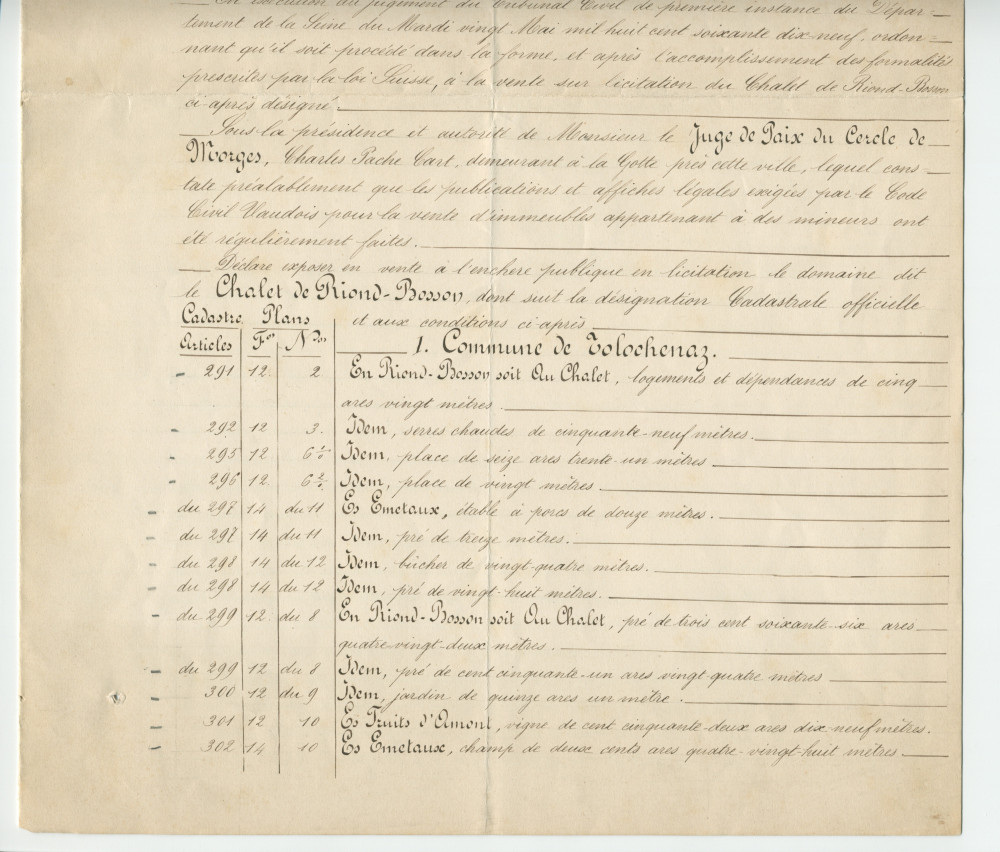 En exécution du jugement du Tribunal Civil de première instance du Dépar=
tement de la Seine du Mardi vingt Mai mil huit cent soixante dix-neuf, ordon=
nant qu'il soit procédé dans la forme, et après l'accomplissement des formalités
prescrites par la loi Suisse, à la vente sur licitation du Chalet de Riond-Bosson
ci-après désigné.
Sous la présidence et autorité de Monsieur le Juge de Paix du Cercle de
Morges, Charles Pache Cart, demeurant à la Gotte près cette ville, lequel cons=
tate préalablement que les publications et affiches légales exigées par le Code
Civil Vaudois pour la vente d'immeubles appartenant à des mineurs ont
été régulièrement faites.
Déclare exposer en vente à l'enchère publique en licitation le domaine dit
le Chalet de Riond-Bosson, dont suit la désignation Cadastrale officielle
et aux conditions ci-après
Cadastre Plans
Articles Fos Nos
1. Commune de Tolochenaz.
291 12. 2 En Riond-Bosson soit Au Chalet, logements et dépendances de cinq
ares vingt mètres.
292 12 3. Idem, serres chaudes de cinquante-neuf mètres.
295 12 6 Idem, place de seize ares trente-un mètres
296 12. 6 Idem, place de vingt mètres.
du 297 14 du 11 Es Emetaux, étable à porcs de douze mètres.
du 297 14 du 11 Idem, pré de treize mètres.
du 298 14 du 12 Idem, bûcher de vingt-quatre mètres.
du 298 14 du 12 Idem, pré de vingt-huit mètres.
du 299 12 du 8 En Riond-Bosson soit Au Chalet, pré de trois cent soixante-six ares
quatre-vingt-deux mètres.
du 299 12 du 8 Idem, pré de cent cinquante-un ares vingt-quatre mètres
300 12 du 9 Idem, jardin de quinze ares un mètre.
301 12 10 Es Truits d'Amont, vigne de cent cinquante-deux ares dix-neuf mètres.
302 14 10 Es Emetaux, champ de deux cents ares quatre-vingt-huit mètres